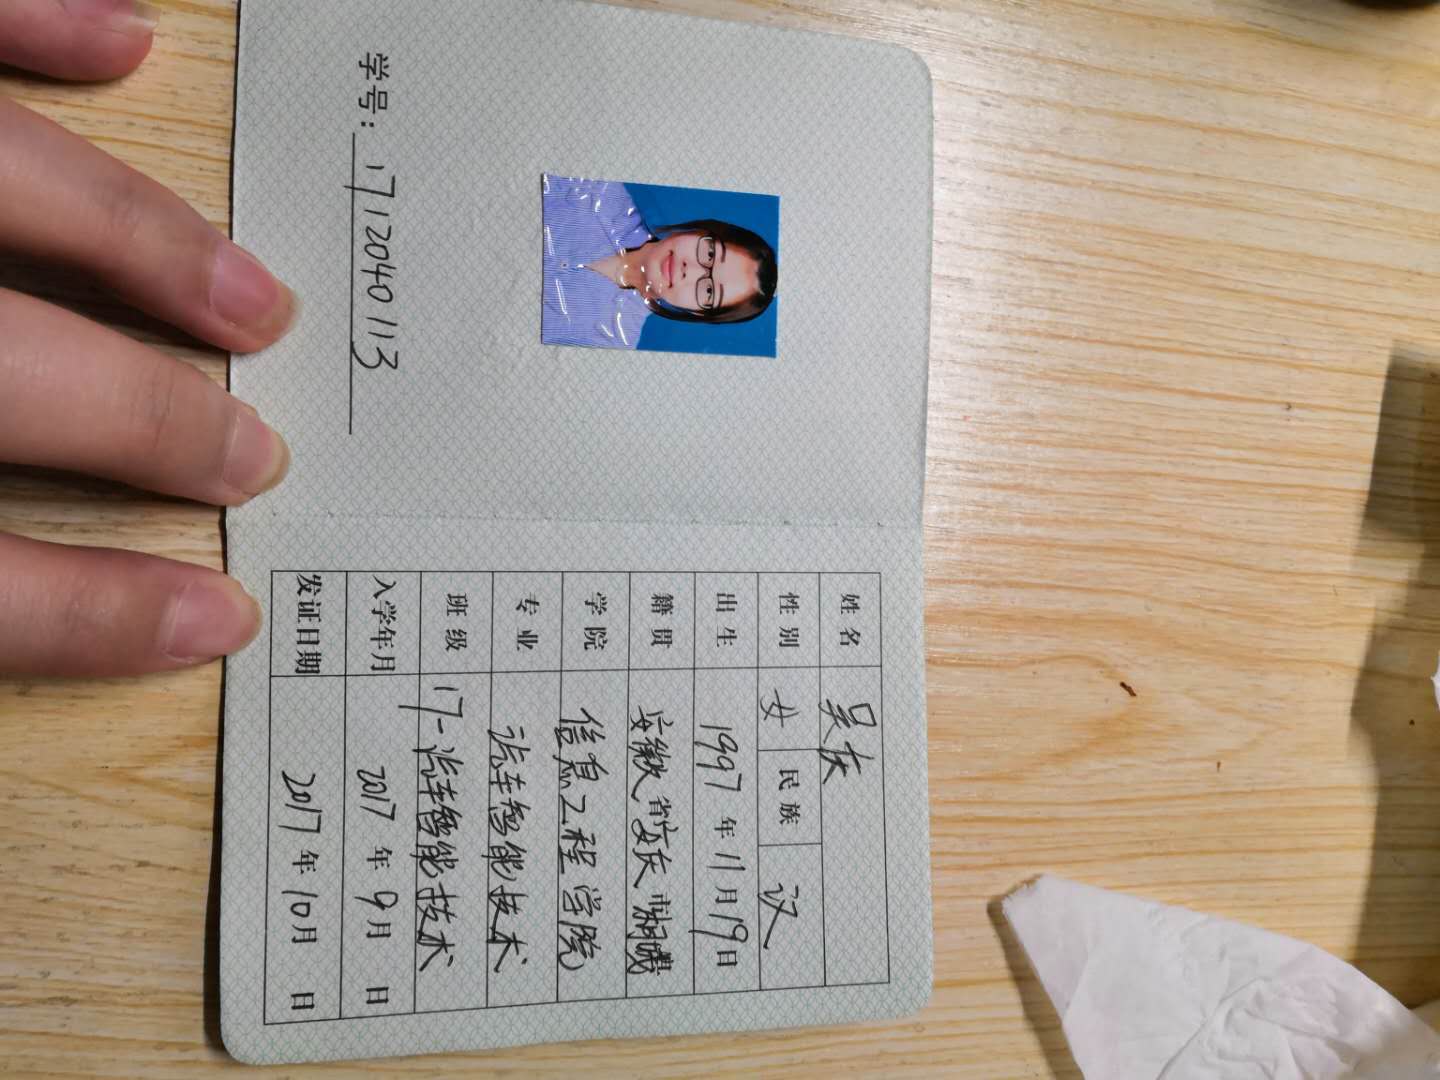 学号：1712040113
姓名 吴庆
性别 女 民族 汉
出生 1997年11月19日
籍贯 安徽省安庆市
学院 信息工程学院
专业 汽车智能技术
班级 17-汽车智能技术
入学年月 2017年9月 日
发证日期 2017年10月 日